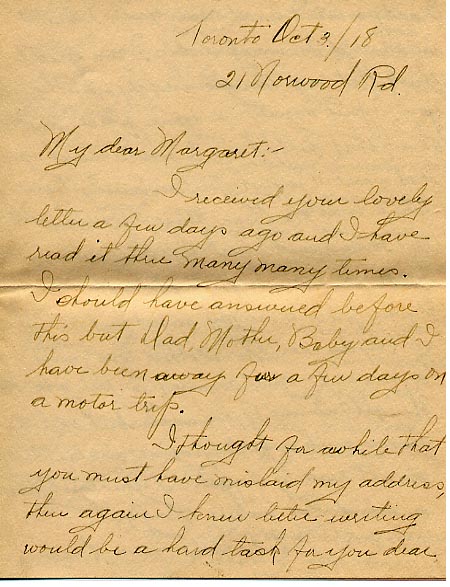 Toronto Oct 3/18
21 Norwood Rd.
My dear Margaret:-
I received your lovely
letter a few days ago and I have
read it thru many many times.
I should have answered before
this but Dad, Mother, Baby and I
have been away for a few days on
a motor trip.
I thought for awhile that
you must have mislaid my address,
then again I knew letter writing
would be a hard task for you dear